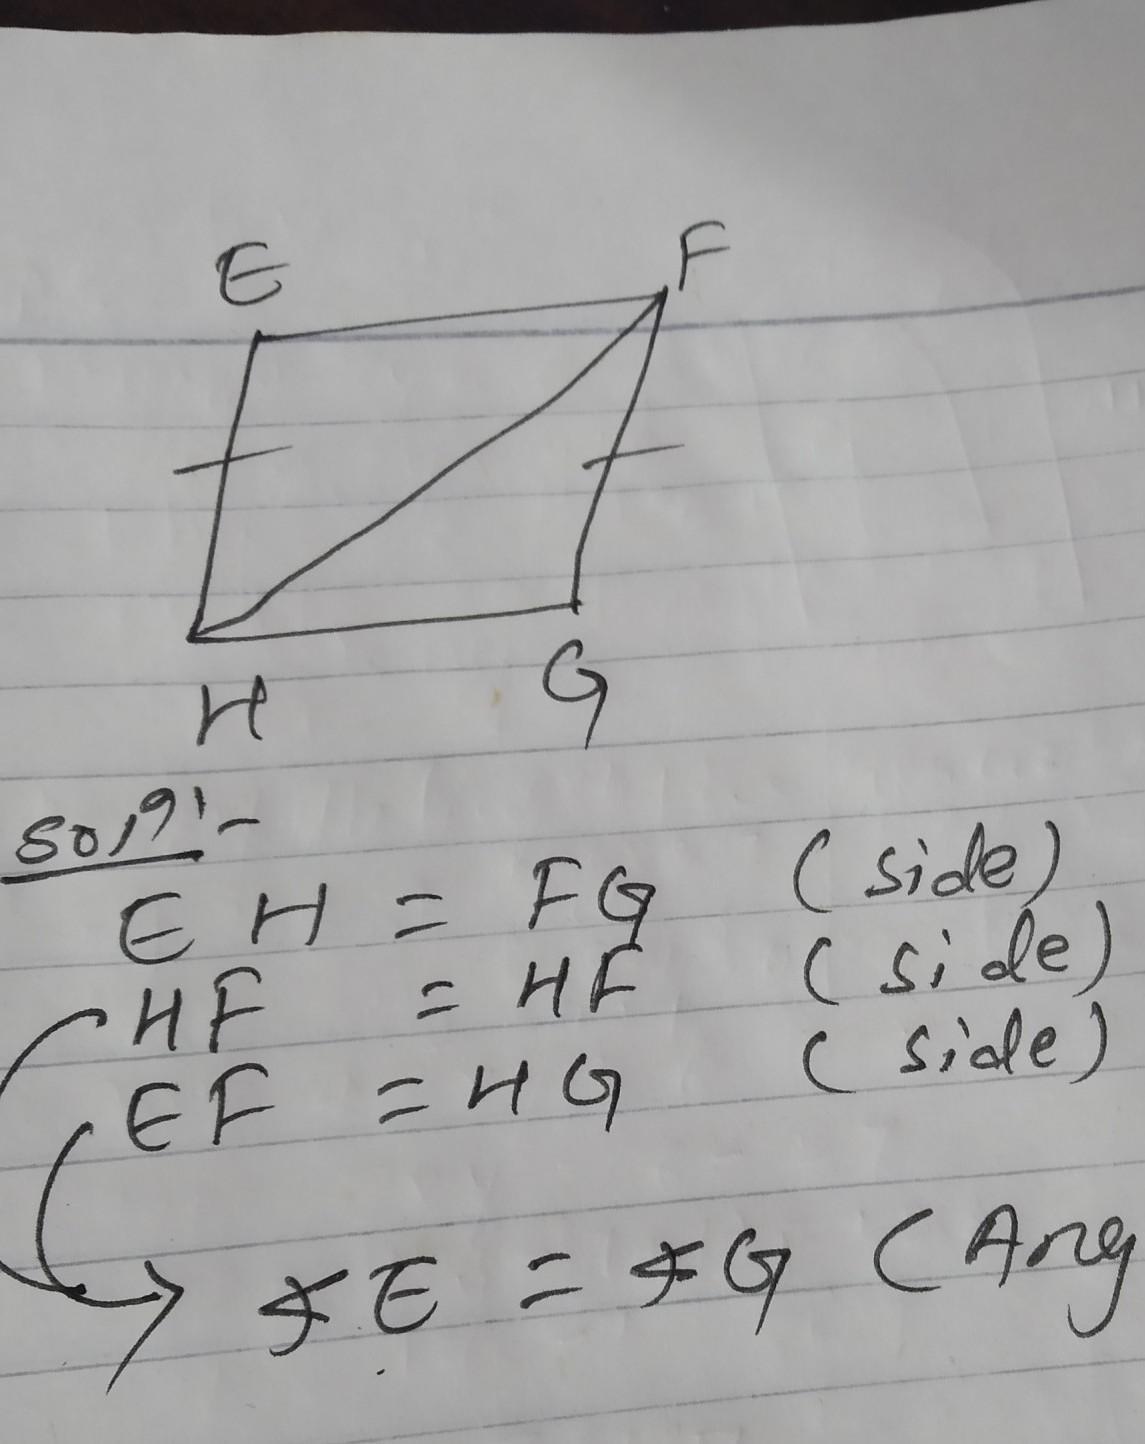 E F
H G
Soln:-
EH = FG (side)
HF = HF (side)
EF = HG (side)
∡E = ∡G (Ang